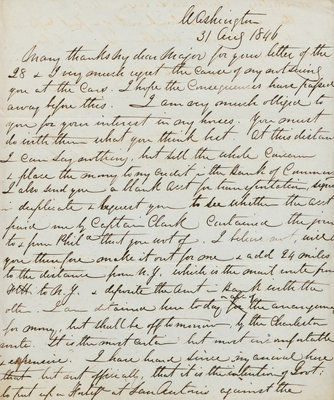 Washington
31 Aug 1846
Many thanks my dear Major for your letter of the
28 & I very much regret the cause of my not seeing
you at the Cars. I hope the Consequences have passed
away before this. I am very much obliged to
you for your interest in my horses. You must
do with them what you think best. At this distance
I can say nothing, but sell the whole Concern
& place the money to my credit in the Bank of Commerce
I also send you a blank acct for transportation, signed
in duplicate & request you to see whether the acct
paid me by Captain Clark contained the journey
to & from Phila that you wot of. I believe not, will
you therefore make it out for me & add 24 miles
to the distance from N.Y. which is the mail route from
to N.Y. & deposite the amt in Bank with the
other. I am detained here today for the arrangement
for money, but shall be off tomorrow, by the Charleston
route. It is the most certain but most uncomfortable
& expensive. I have heard since my arrival here
that but not officially, that it is the intention of Govt.
to put up a at San Antonio against the